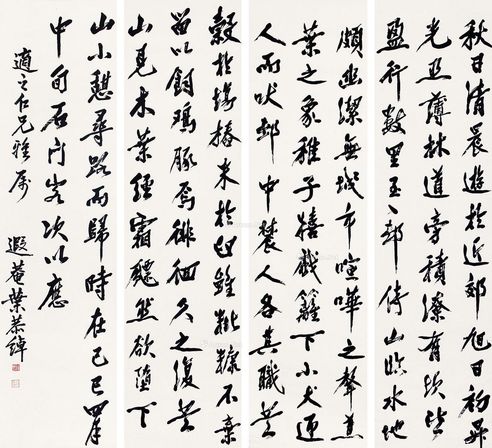 秋日清晨遊於近郊旭日初昇
光薄林道旁積潦有坎皆
盈行數里至一邨倚山臨水地
頗幽潔無城市喧嘩之聲
之象稚子犧戲籬下小犬迎
人而吠邨中農人各其職
穀於場椿米於臼雖秕糠不棄
留以飼鷄豚焉徘徊久之復登
山見木葉經霜然欲墮下
山小憩尋路而歸時在己巳
中旬石門客次以應
適之仁兄雅屬 遐菴葉恭綽